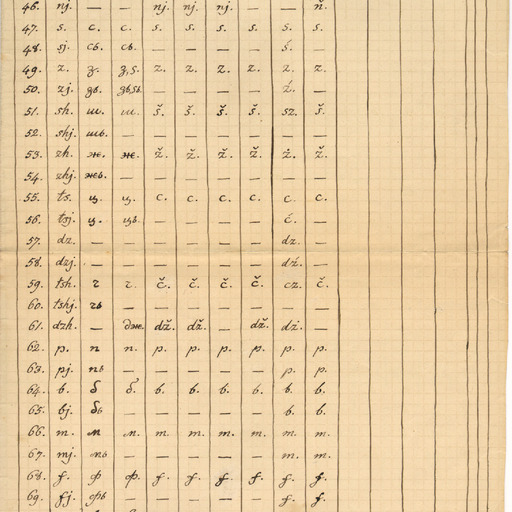 46. nj. — — nj. nj. nj. — — ň.
47. s. с. с. s. s. s. s. s. s.
48. sj. сь. сь. — — — — ś. —
49. z. з. з,s. z. z. z. z. z. z.
50. zj. зь. — — — — ź. —
51. sh. ш. ш. š. š. š. š. sz. š.
52. shj. шь. — — — — — — —
53. zh. ж. ж. ž. ž. ž. ž. ż. ž.
54. zhj. жь. — — — — — — —
55. ts. ц. ц. c. c. c. c. c. c.
56. tsj. ц. ць. — — — — ć. —
57. dz. — — — — — — dz. —
58. dzj. — — — — — — dź. —
59. tsh. ч ч. č. č. č. č. cz. č.
60. tshj. чь — — — — — — —
61. dzh. — дж. dž. dž. — dž. dż. —
62. p. п п. p. p. p. p. p. p.
63. pj. пь — — — — — p. p.
64. b. б б. b. b. b. b. b. b.
65. bj. бь — — — — — b. b.
66. m. м м. m. m. m. m. m. m.
67. mj. мь — — — — — m. m.
68. f. ф ф. f. f. f. f. f. f.
69. fj. фь — — — — — f. f.